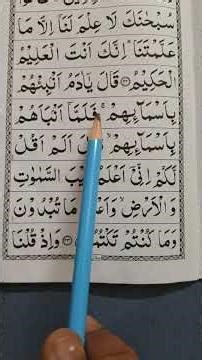 سُبْحٰنَكَ لَا عِلْمَ لَنَآ اِلَّا مَا
عَلَّمْتَنَا ؕ اِنَّكَ اَنْتَ الْعَلِيْمُ
الْحَكِيْمُ ﴿۳۲﴾ قَالَ يٰٓاٰدَمُ اَنْۢبِئْهُمْ
بِاَسْمَآئِهِمْ ۚ فَلَمَّآ اَنْۢبَاَهُمْ
بِاَسْمَآئِهِمْ ۙ قَالَ اَلَمْ اَقُلْ
لَّكُمْ اِنِّيْٓ اَعْلَمُ غَيْبَ السَّمٰوٰتِ
وَالْاَرْضِ ۙ وَاَعْلَمُ مَا تُبْدُوْنَ
وَمَا كُنْتُمْ تَكْتُمُوْنَ ﴿۳۳﴾ وَاِذْ قُلْنَا